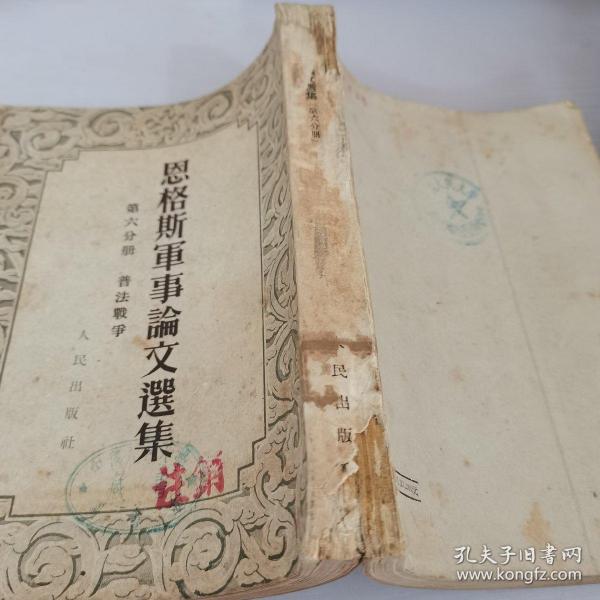 恩格斯軍事論文選集
第六分册 普法戰爭
人民出版社
註銷
選集 第六分册
民出版
孔夫子旧書网
www.kongfz.com